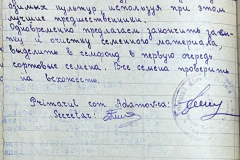 бимых культур, используя при этом
лучшие предшественники.
Одновременно предлагаем закончить завоз-
ку и очистку семенного материала
выделить в семфонд в первую очередь
сортовые семена. Все семена проверить
на всхожесть.
Primarul com. Adamovca:
Secretar: